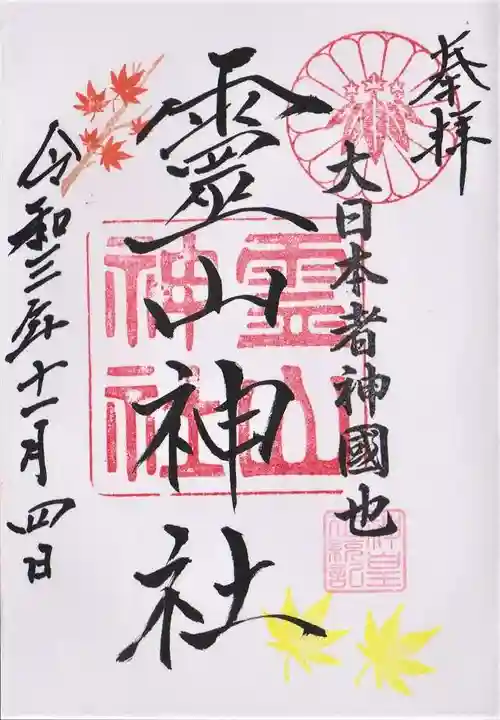 奉拝
大日本者神國也
靈山神社
霊山
神社
神皇
正統記
令和三年十一月四日